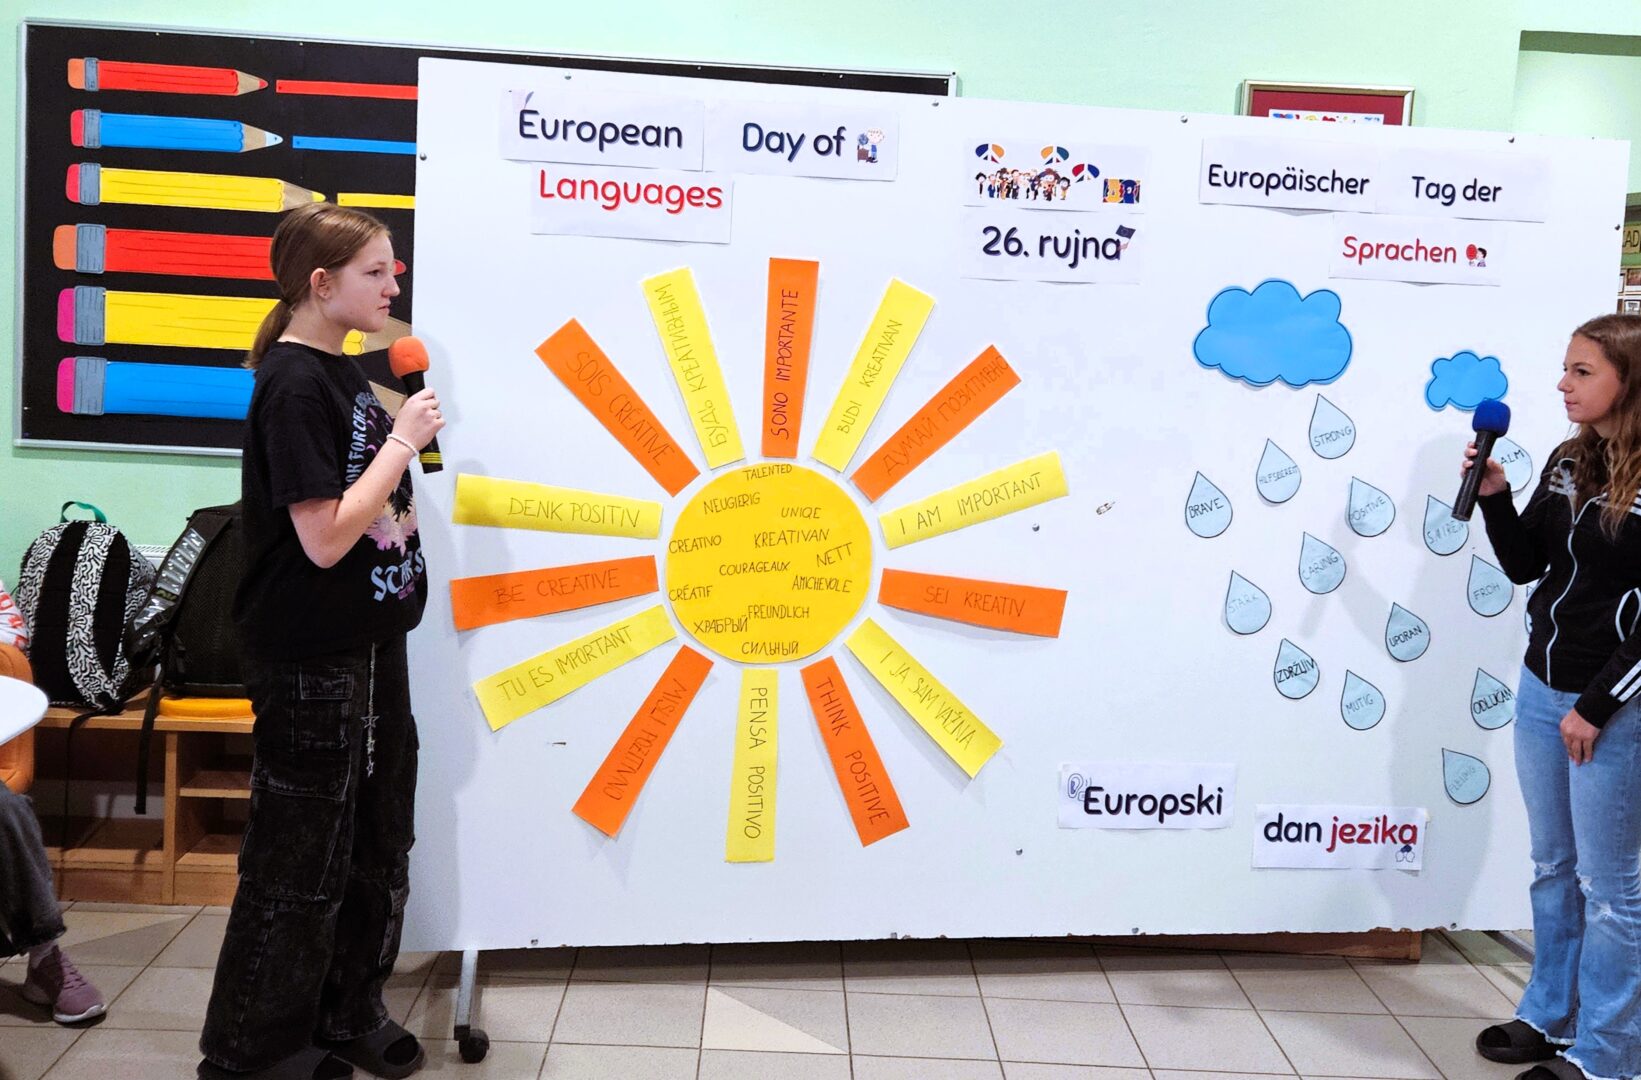 European Day of
Languages
26. rujna
Europäischer Tag der
Sprachen
SOIS CRÉATIVE
БУДЬ КРЕАТИВНЫМ
SONO IMPORTANTE
BUDI KREATIVAN
ДУМАЙ ПОЗИТИВНО
I AM IMPORTANT
SEI KREATIV
I JA SAM VAŽNA
THINK POSITIVE
PENSA POSITIVO
MISLI POZITIVNO
TU ES IMPORTANT
BE CREATIVE
DENK POSITIV
TALENTED
NEUGIERIG
UNIQE
CREATIVO
KREATIVAN
NETT
COURAGEAUX
AMICHEVOLE
CRÉATIF
FREUNDLICH
ХРАБРЫЙ
СИЛЬНЫЙ
STRONG
HILFSBEREIT
BRAVE
POSITIVE
CARING
STARK
FROH
UPORAN
ZDRŽLJIV
MUTIG
ODLUČAN
Europski
dan jezika